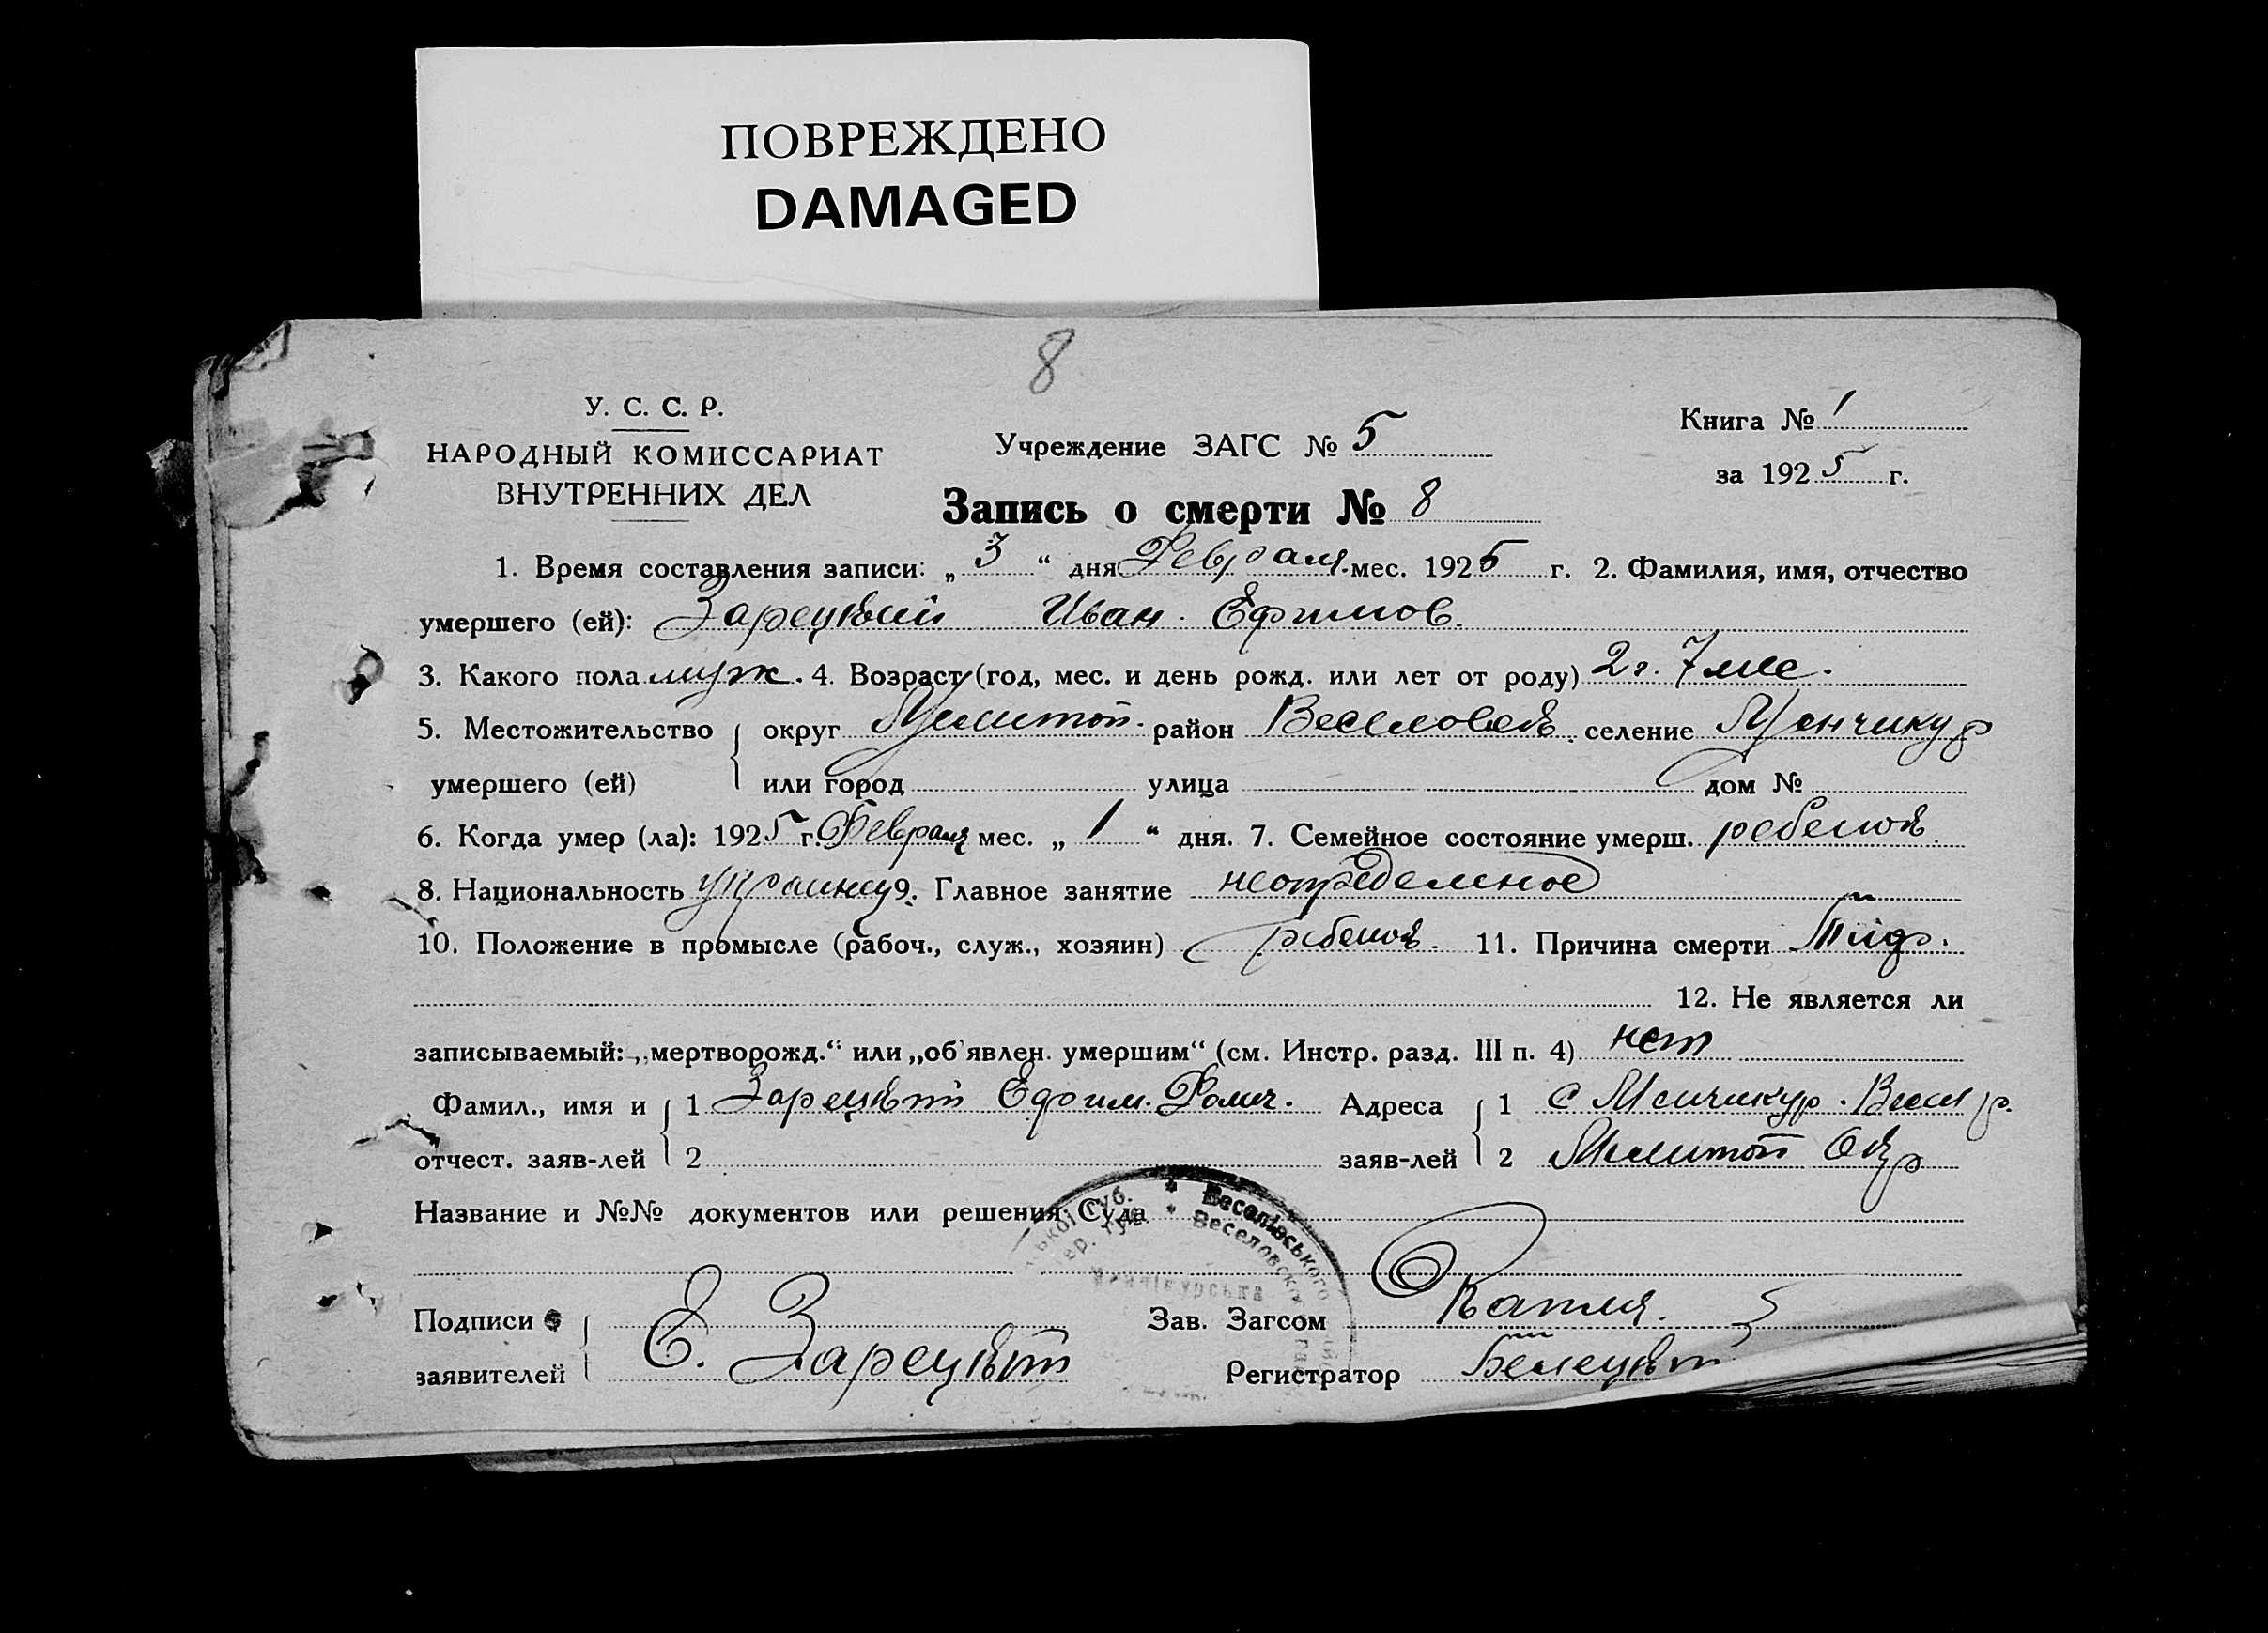 ПОВРЕЖДЕНО
DAMAGED
8
У. С. С. Р.
НАРОДНЫЙ КОМИССАРИАТ
ВНУТРЕННИХ ДЕЛ
Учреждение ЗАГС № 5
Книга № 1
за 1925 г.
Запись о смерти № 8
1. Время составления записи: „ 3 “ дня Февраля мес. 1925 г. 2. Фамилия, имя, отчество
умершего (ей): Зарецкий Иван Ефимов.
3. Какого пола муж. 4. Возраст (год, мес. и день рожд. или лет от роду) 2 г. 7 мес.
5. Местожительство округ Мелитоп. район Веселовск. селение Менчикур
умершего (ей) или город улица дом №
6. Когда умер (ла): 1925 г. Февраля мес. „ 1 “ дня. 7. Семейное состояние умерш. ребенок
8. Национальность украинец 9. Главное занятие неопределеное
10. Положение в промысле (рабоч., служ., хозяин) ребенок. 11. Причина смерти
12. Не является ли
записываемый: „мертворожд.“ или „об'явлен. умершим“ (см. Инстр. разд. III п. 4) нет
Фамил., имя и 1 Зарецкий Ефим. Фомич. Адреса 1 с Менчикур. Весел р.
отчест. заяв-лей 2 заяв-лей 2 Мелитоп Окр
Название и №№ документов или решения Суда
* Веселівського
* Веселовск
Подписи Зав. Загсом Капля.
заявителей Е. Зарецкий Регистратор Белецкий